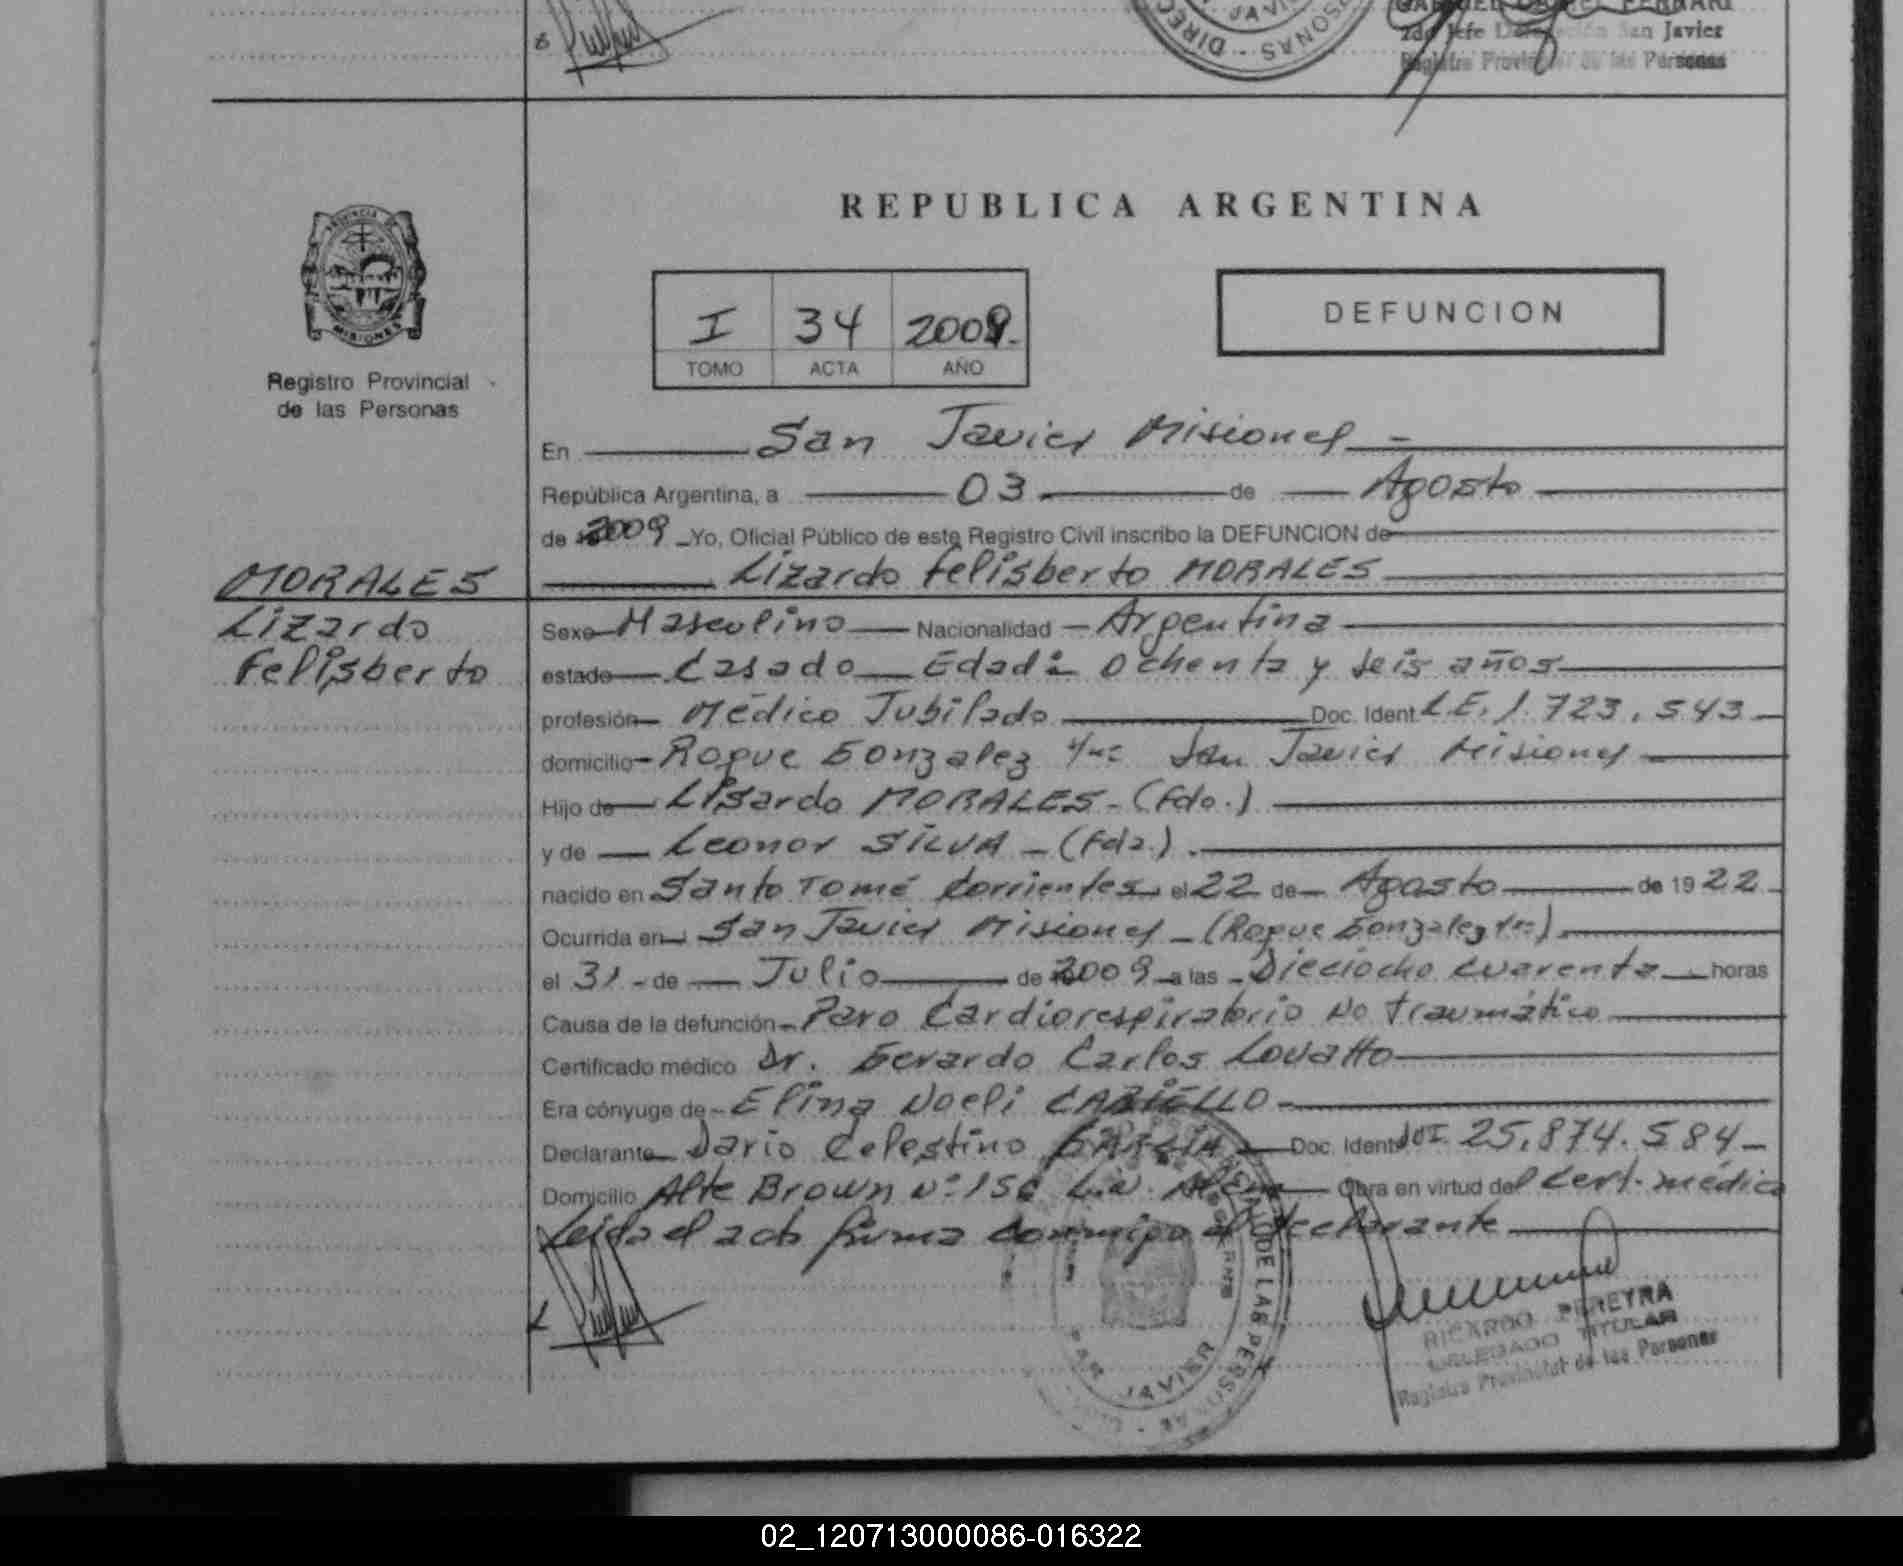 GABRIEL
2do Jefe Delegación San Javier
Registro Provincial de las Personas
DIREC
SONAS
JAVI
PROVINCIA DE
MISIONES
Registro Provincial
de las Personas
REPUBLICA ARGENTINA
I 34 2009.
TOMO ACTA AÑO
DEFUNCION
En San Javier Misiones -
República Argentina, a 03 de Agosto
de 2009 Yo, Oficial Público de este Registro Civil inscribo la DEFUNCION de
MORALES
Lizardo
Felisberto
Lizardo Felisberto MORALES
Sexo Masculino Nacionalidad Argentina
estado Casado Edad: Ochenta y seis años
profesión Médico Jubilado Doc. Ident. L.E. 1.723.543
domicilio Roque Gonzalez s/nº San Javier Misiones
Hijo de Lisardo MORALES - (Fdo.)
y de Leonor SILVA - (Fda.).
nacido en Santo Tomé Corrientes el 22 de Agosto de 1922
Ocurrida en San Javier Misiones - (Roque Gonzalez s/nº).
el 31 - de Julio de 2009 a las Dieciocho cuarenta horas
Causa de la defunción Paro Cardiorespiratorio No traumático
Certificado médico Dr. Gerardo Carlos Lovatto
Era cónyuge de Elina Noeli
Declarante Dario Celestino GARCIA Doc. Ident. DNI 25.874.584
Domicilio Alte Brown Nº 156 L.N. Alem Obra en virtud del Cert. médico
Leida el acta firma conmigo el declarante
DE LAS PERSONAS
SAN JAVIER
RICARDO PEREYRA
DELEGADO TITULAR
Registro Provincial de las Personas
02_120713000086-016322